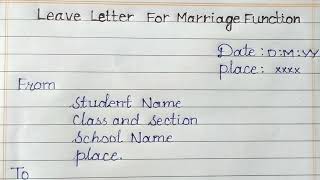 Leave Letter For Marriage Function
Date: D:M:YY
place: xxxx
From
Student Name
Class and Section
School Name
place.
To